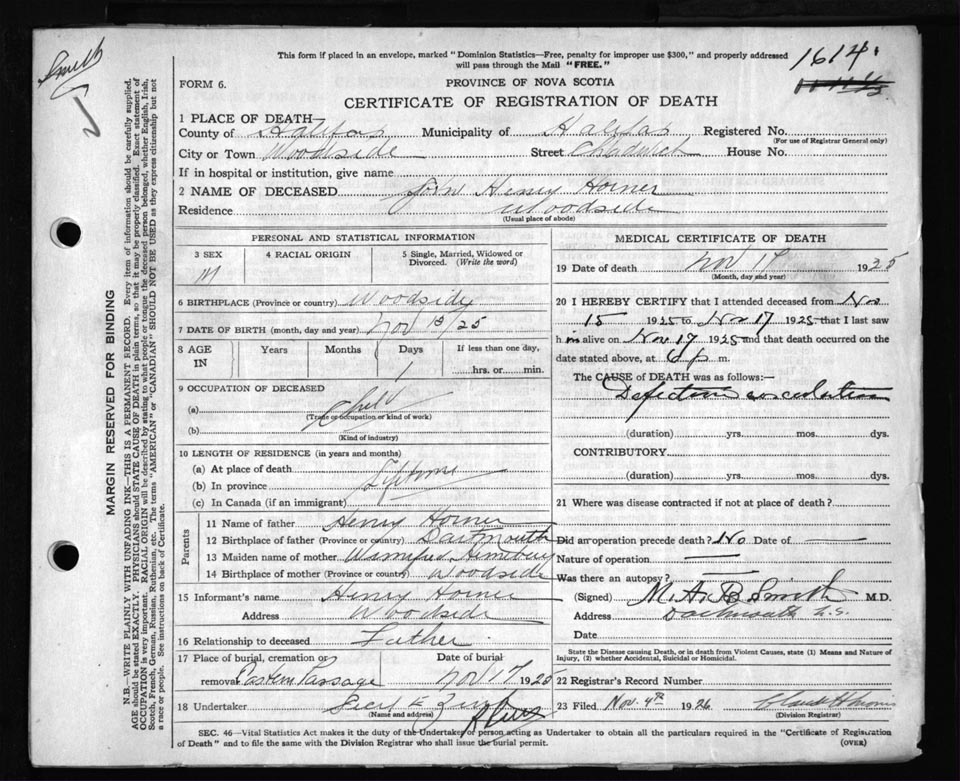 Smith
This form if placed in an envelope, marked "Dominion Statistics—Free, penalty for improper use $300," and properly addressed
will pass through the Mail "FREE."
1614
FORM 6.
PROVINCE OF NOVA SCOTIA
CERTIFICATE OF REGISTRATION OF DEATH
1 PLACE OF DEATH—
County of Halifax Municipality of Halifax Registered No.
(For use of Registrar General only)
City or Town Woodside Street Chadwick House No.
If in hospital or institution, give name
2 NAME OF DECEASED John Henry Horner
Residence Woodside
(Usual place of abode)
PERSONAL AND STATISTICAL INFORMATION
3 SEX 4 RACIAL ORIGIN 5 Single, Married, Widowed or
Divorced. (Write the word)
M
6 BIRTHPLACE (Province or country) Woodside
7 DATE OF BIRTH (month, day and year) Nov 15/25
8 AGE IN Years Months Days If less than one day,
1 hrs. or min.
9 OCCUPATION OF DECEASED
(a) Child
(Trade or occupation or kind of work)
(b)
(Kind of industry)
10 LENGTH OF RESIDENCE (in years and months)
(a) At place of death
(b) In province Lifetime
(c) In Canada (if an immigrant)
Parents
11 Name of father Henry Horner
12 Birthplace of father (Province or country) Dartmouth
13 Maiden name of mother Winnifred
14 Birthplace of mother (Province or country) Woodside
15 Informant's name Henry Horner
Address Woodside
16 Relationship to deceased Father
17 Place of burial, cremation or Date of burial
removal Eastern Passage Nov 17 1925
18 Undertaker Cecil E
(Name and address)
MEDICAL CERTIFICATE OF DEATH
19 Date of death Nov 17 1925
(Month, day and year)
20 I HEREBY CERTIFY that I attended deceased from Nov
15 1925 to Nov 17 1925 that I last saw
him alive on Nov 17 1925 and that death occurred on the
date stated above, at 6 p m.
The CAUSE of DEATH was as follows:—
Defective circulation
(duration) yrs. mos. dys.
CONTRIBUTORY
(duration) yrs. mos. dys.
21 Where was disease contracted if not at place of death?
Did an operation precede death? No Date of —
Nature of operation —
Was there an autopsy? —
(Signed) M. A. B. Smith M.D.
Address Dartmouth N.S.
Date
State the Disease causing Death, or in death from Violent Causes, state (1) Means and Nature of
Injury, (2) whether Accidental, Suicidal or Homicidal.
22 Registrar's Record Number
23 Filed Nov. 4th 1926
(Division Registrar)
SEC. 46—Vital Statistics Act makes it the duty of the Undertaker or person acting as Undertaker to obtain all the particulars required in the "Certificate of Registration
of Death" and to file the same with the Division Registrar who shall issue the burial permit.
(OVER)
MARGIN RESERVED FOR BINDING
N.B.—WRITE PLAINLY WITH UNFADING INK—THIS IS A PERMANENT RECORD. Every item of information should be carefully supplied.
AGE should be stated EXACTLY. PHYSICIANS should STATE CAUSE OF DEATH in plain terms, so that it may be properly classified. Exact statement of
OCCUPATION is very important. RACIAL ORIGIN will be described by stating to what people or tongue the deceased person belonged, whether English, Irish,
Scotch, French, German, Russian, Ruthenian, etc. The terms "AMERICAN" or "CANADIAN" SHOULD NOT BE USED as they express citizenship but not
a race or people. See instructions on back of Certificate.